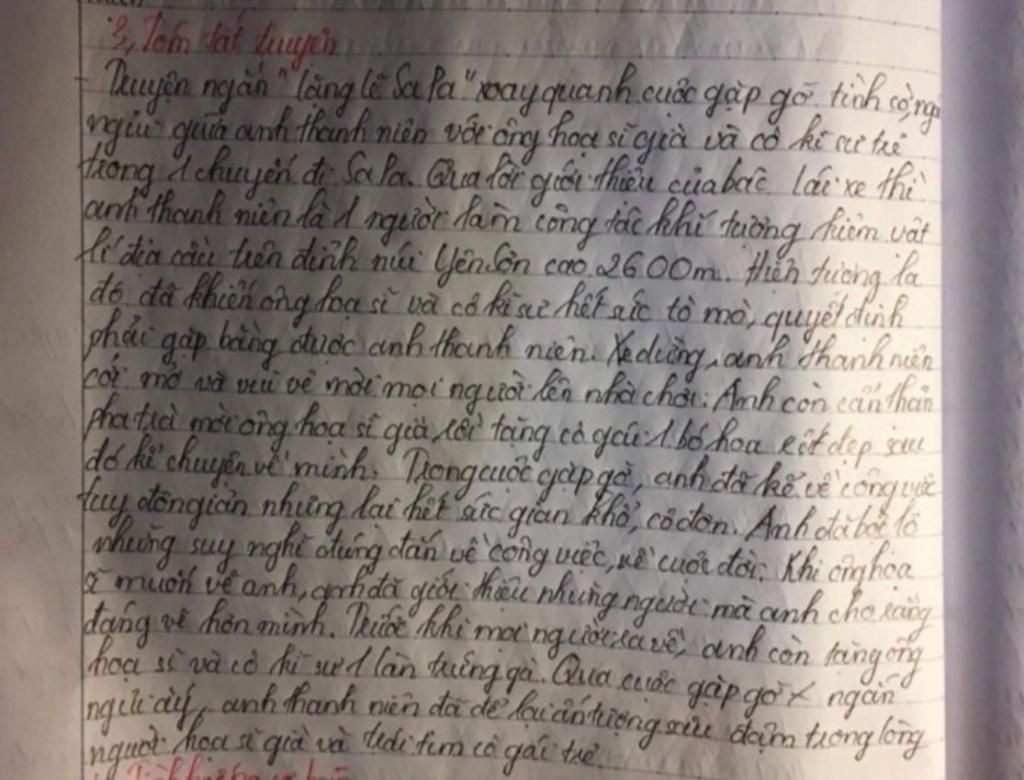 3, Tóm tắt truyện
- Truyện ngắn "lặng lẽ Sa Pa" xoay quanh cuộc gặp gỡ tình cờ, ngắn
ngủi giữa anh thanh niên với ông hoạ sĩ già và cô kĩ sư trẻ
trong 1 chuyến đi Sa Pa. Qua lời giới thiệu của bác lái xe thì
anh thanh niên là 1 người làm công tác khí tượng kiêm vật
lí địa cầu trên đỉnh núi Yên Sơn cao 2600m. Hiện tượng lạ
đó đã khiến ông hoạ sĩ và cô kĩ sư hết sức tò mò, quyết định
phải gặp bằng được anh thanh niên. Xe dừng, anh thanh niên
cởi mở và vui vẻ mời mọi người lên nhà chơi. Anh còn cẩn thận
pha trà mời ông hoạ sĩ già, rồi tặng cô gái 1 bó hoa rất đẹp sau
đó kể chuyện về mình. Trong cuộc gặp gỡ, anh đã kể về công việc
tuy đơn giản nhưng lại hết sức gian khổ, cô đơn. Anh đã bộc lộ
những suy nghĩ đúng đắn về công việc, về cuộc đời. Khi ông hoạ
sĩ muốn vẽ anh, anh đã giới thiệu những người mà anh cho rằng
đáng vẽ hơn mình. Trước khi mọi người ra về, anh còn tặng ông
hoạ sĩ và cô kĩ sư 1 làn trứng gà. Qua cuộc gặp gỡ ngắn
ngủi ấy, anh thanh niên đã để lại ấn tượng sâu đậm trong lòng
người hoạ sĩ già và trái tim cô gái trẻ.